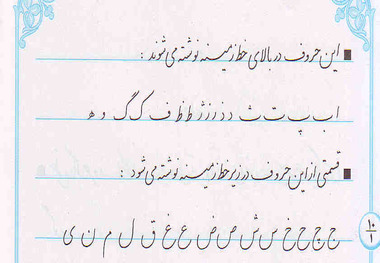 این حروف در بالای خط زمینه نوشته می‌شوند :
ا ب پ ت ث د ذ ر ز ژ ط ظ ف ک گ و ه
قسمتی از این حروف در زیر خط زمینه نوشته می‌شود :
ج چ ح خ س ش ص ض ع غ ق ل م ن ی
۱۰
۱